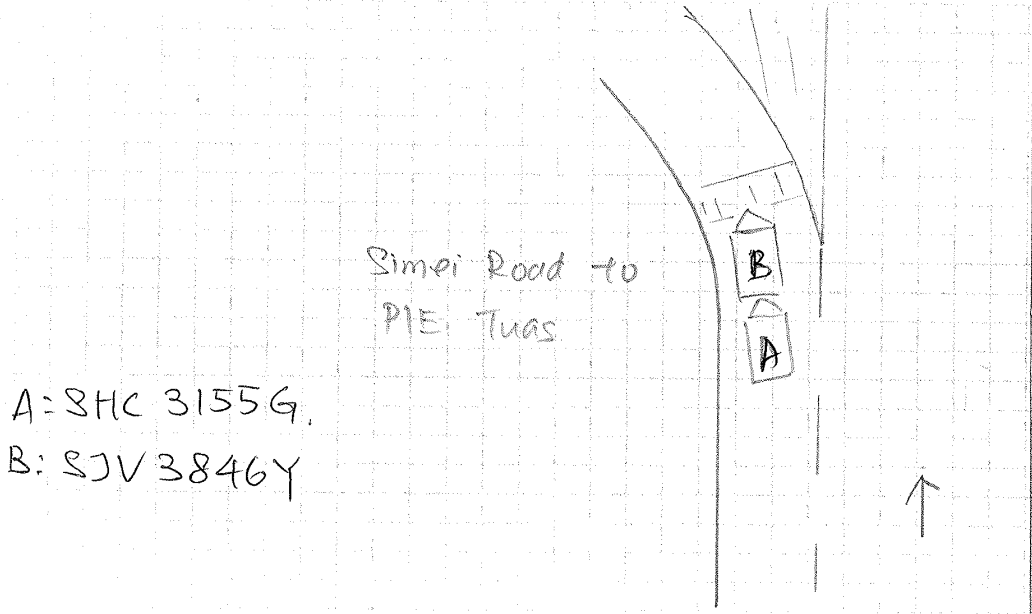 Simei Road to
PIE, Tuas
B
A
A: SHC 3155G.
B: SJV 3846Y